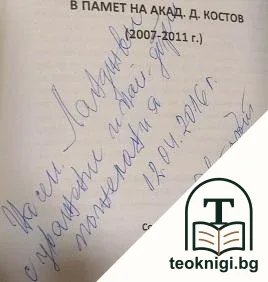 В ПАМЕТ НА АКАД. Д. КОСТОВ
(2007-2011 г.)
с уважение и най-добри
пожелания
12.04.2016 г.
T
teoknigi.bg